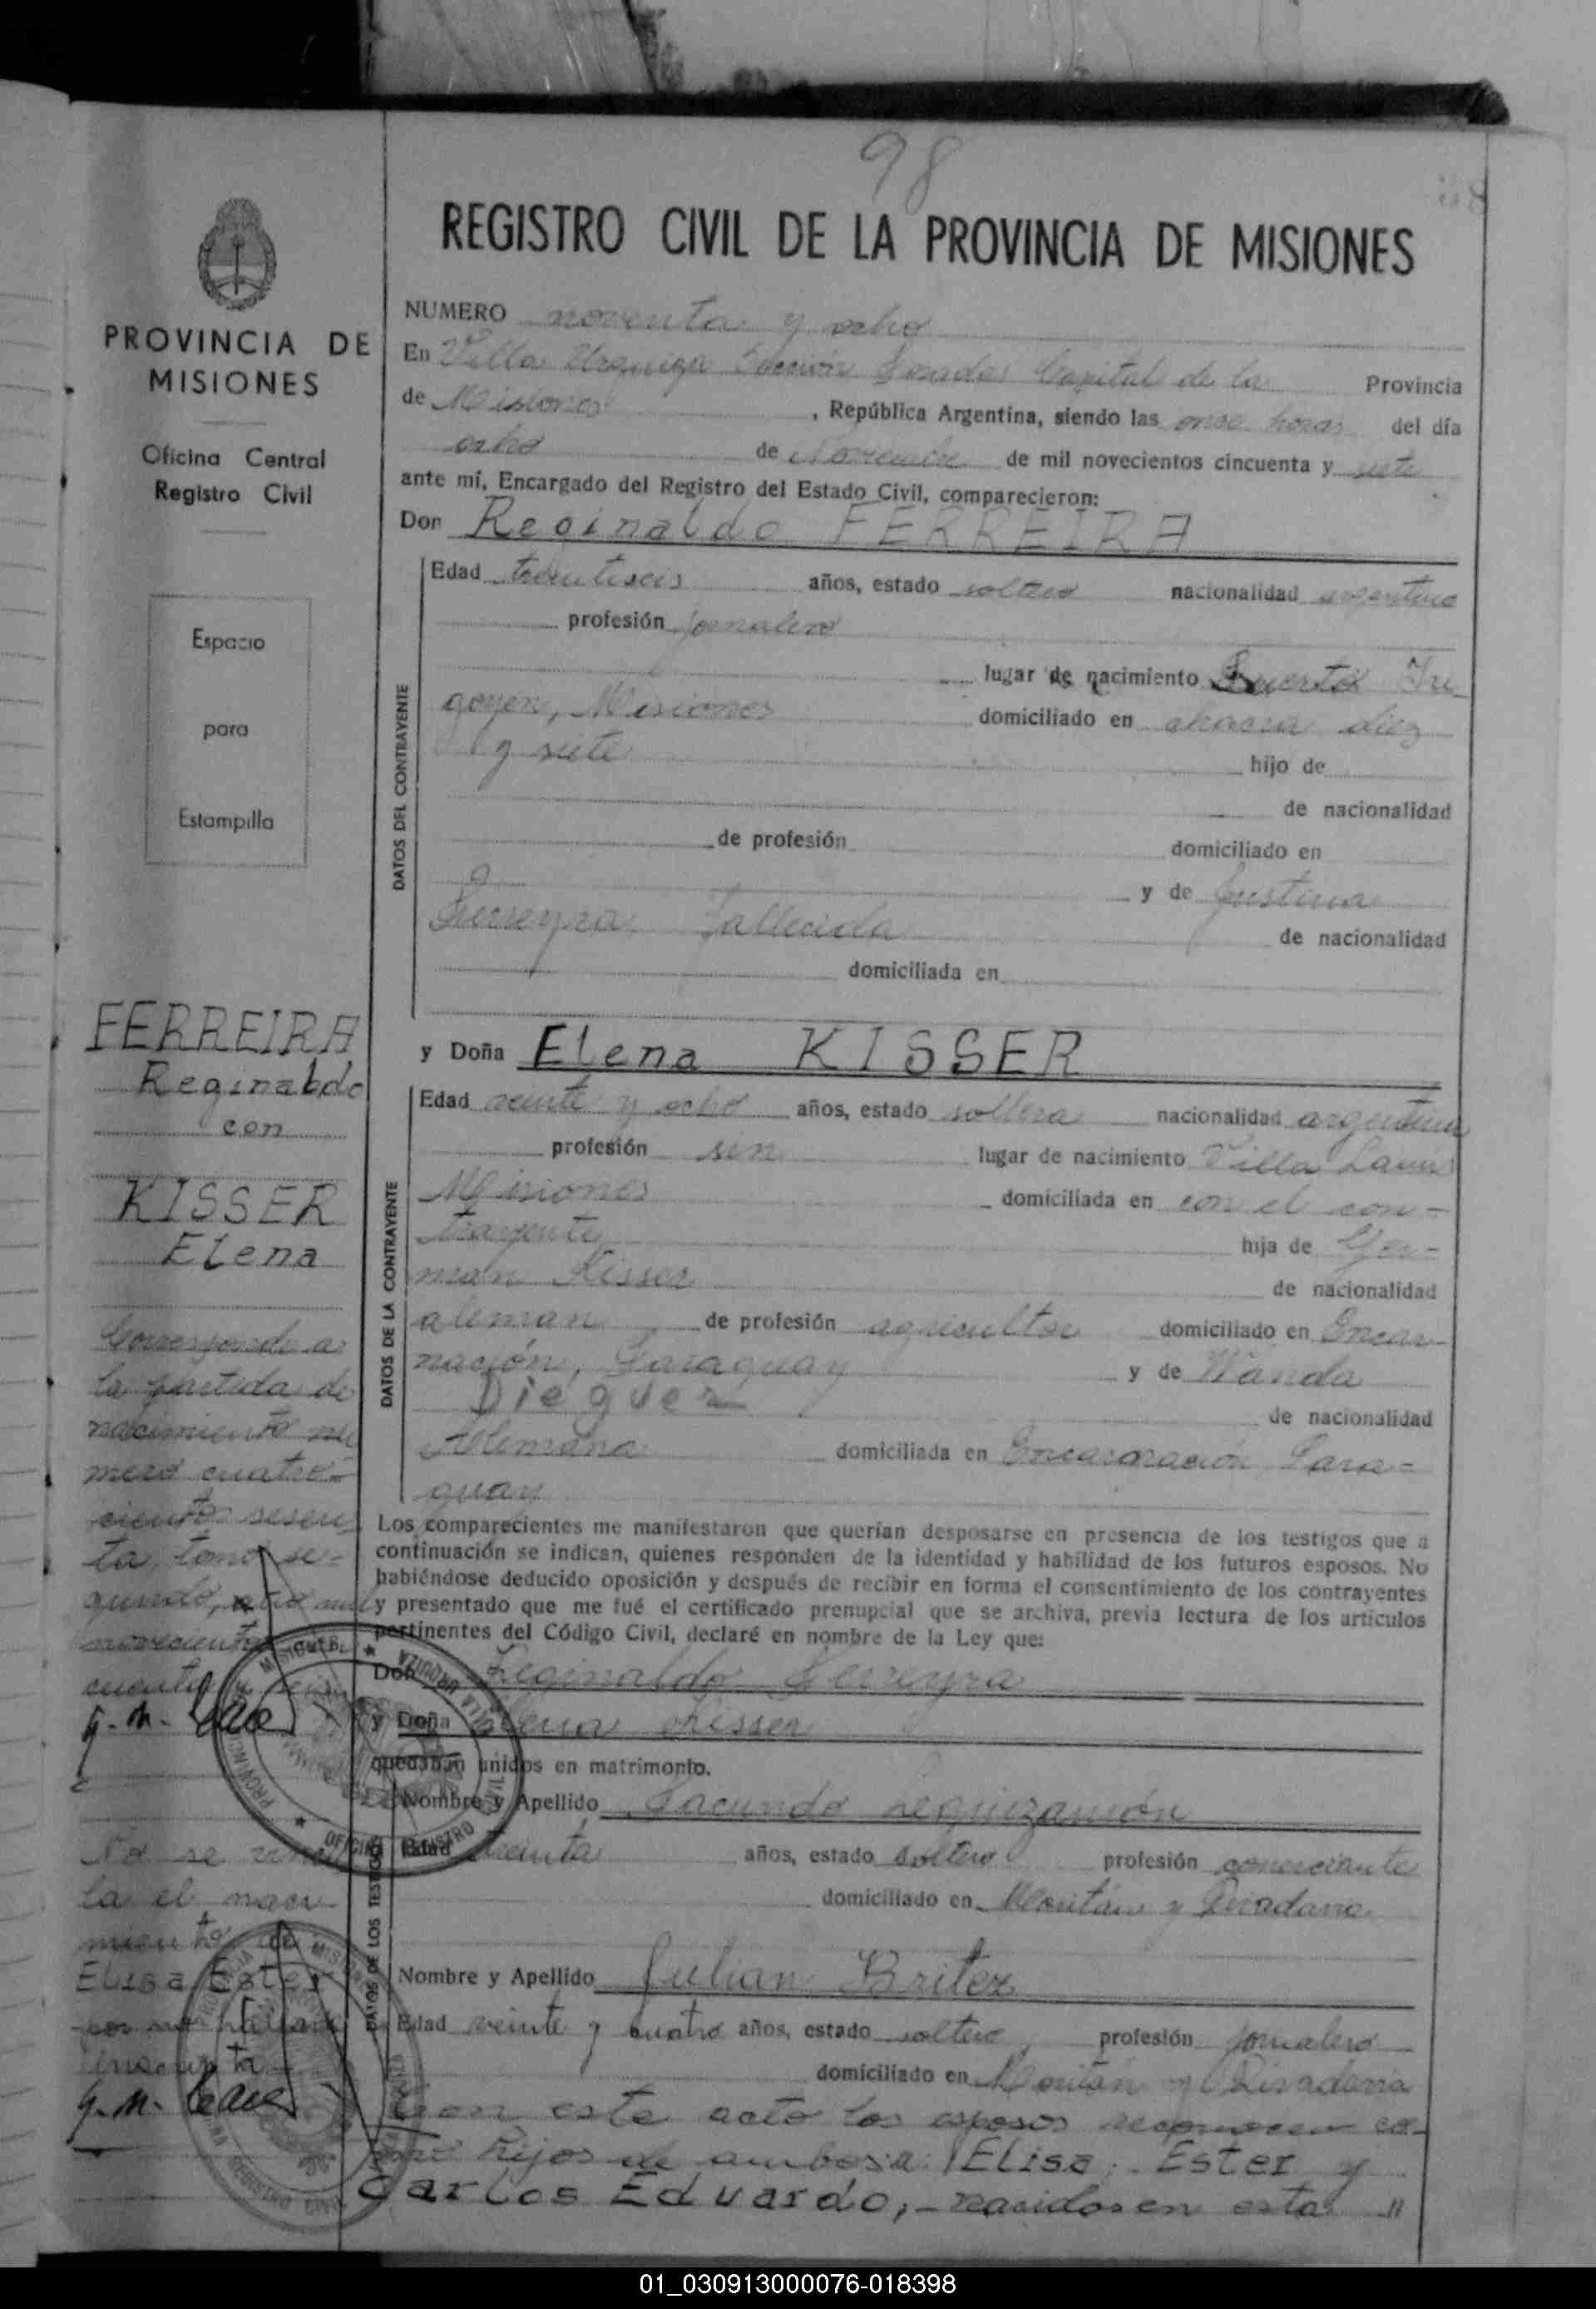 98
REGISTRO CIVIL DE LA PROVINCIA DE MISIONES
PROVINCIA DE
MISIONES
Oficina Central
Registro Civil
Espacio
para
Estampilla
FERREIRA
Reginaldo
con
KISSER
Elena
Corresponde a
la partida de
nacimiento nu
mero cuatro-
ciento sesen
ta, tomo se-
gundo, año mil
novecientos
cuenta
No se
la el naci
miento de
Elisa Ester
por no
inscripta
NUMERO noventa y ocho
En Villa Urquiza Sección Posadas Capital de la Provincia
de Misiones, República Argentina, siendo las once horas del día
ocho de Noviembre de mil novecientos cincuenta y siete
ante mí, Encargado del Registro del Estado Civil, comparecieron:
Don Reginaldo FERREIRA
DATOS DEL CONTRAYENTE
Edad treintiseis años, estado soltero nacionalidad argentino
profesión jornalero
lugar de nacimiento Puerto Iri
goyen, Misiones domiciliado en chacra diez
y siete hijo de
de nacionalidad
de profesión domiciliado en
y de Justina
Ferreyra, Fallecida de nacionalidad
domiciliada en
y Doña Elena KISSER
DATOS DE LA CONTRAYENTE
Edad veinte y ocho años, estado soltera nacionalidad argentina
profesión sin lugar de nacimiento Villa Lanús
Misiones domiciliada en con el con-
trayente hija de Ger-
man Kisser de nacionalidad
aleman de profesión agricultor domiciliado en Encar-
nación, Paraguay y de Wanda
Dieguez de nacionalidad
Alemana domiciliada en Encarnación Para-
guay
Los comparecientes me manifestaron que querían desposarse en presencia de los testigos que a
continuación se indican, quienes responden de la identidad y habilidad de los futuros esposos. No
habiéndose deducido oposición y después de recibir en forma el consentimiento de los contrayentes
y presentado que me fué el certificado prenupcial que se archiva, previa lectura de los artículos
pertinentes del Código Civil, declaré en nombre de la Ley que:
Don Reginaldo Ferreyra
y Doña Elena Kisser
quedaban unidos en matrimonio.
DATOS DE LOS TESTIGOS
Nombre y Apellido Facundo Leguizamón
Edad treinta años, estado soltero profesión comerciante
domiciliado en y Rivadavia
Nombre y Apellido Julian Britez
Edad veinte y cuatro años, estado soltero profesión jornalero
domiciliado en y Rivadavia
En este acto los esposos reconocen co-
mo hijos de ambos a: Elisa Ester y
Carlos Eduardo, - nacidos en esta "
01_030913000076-018398